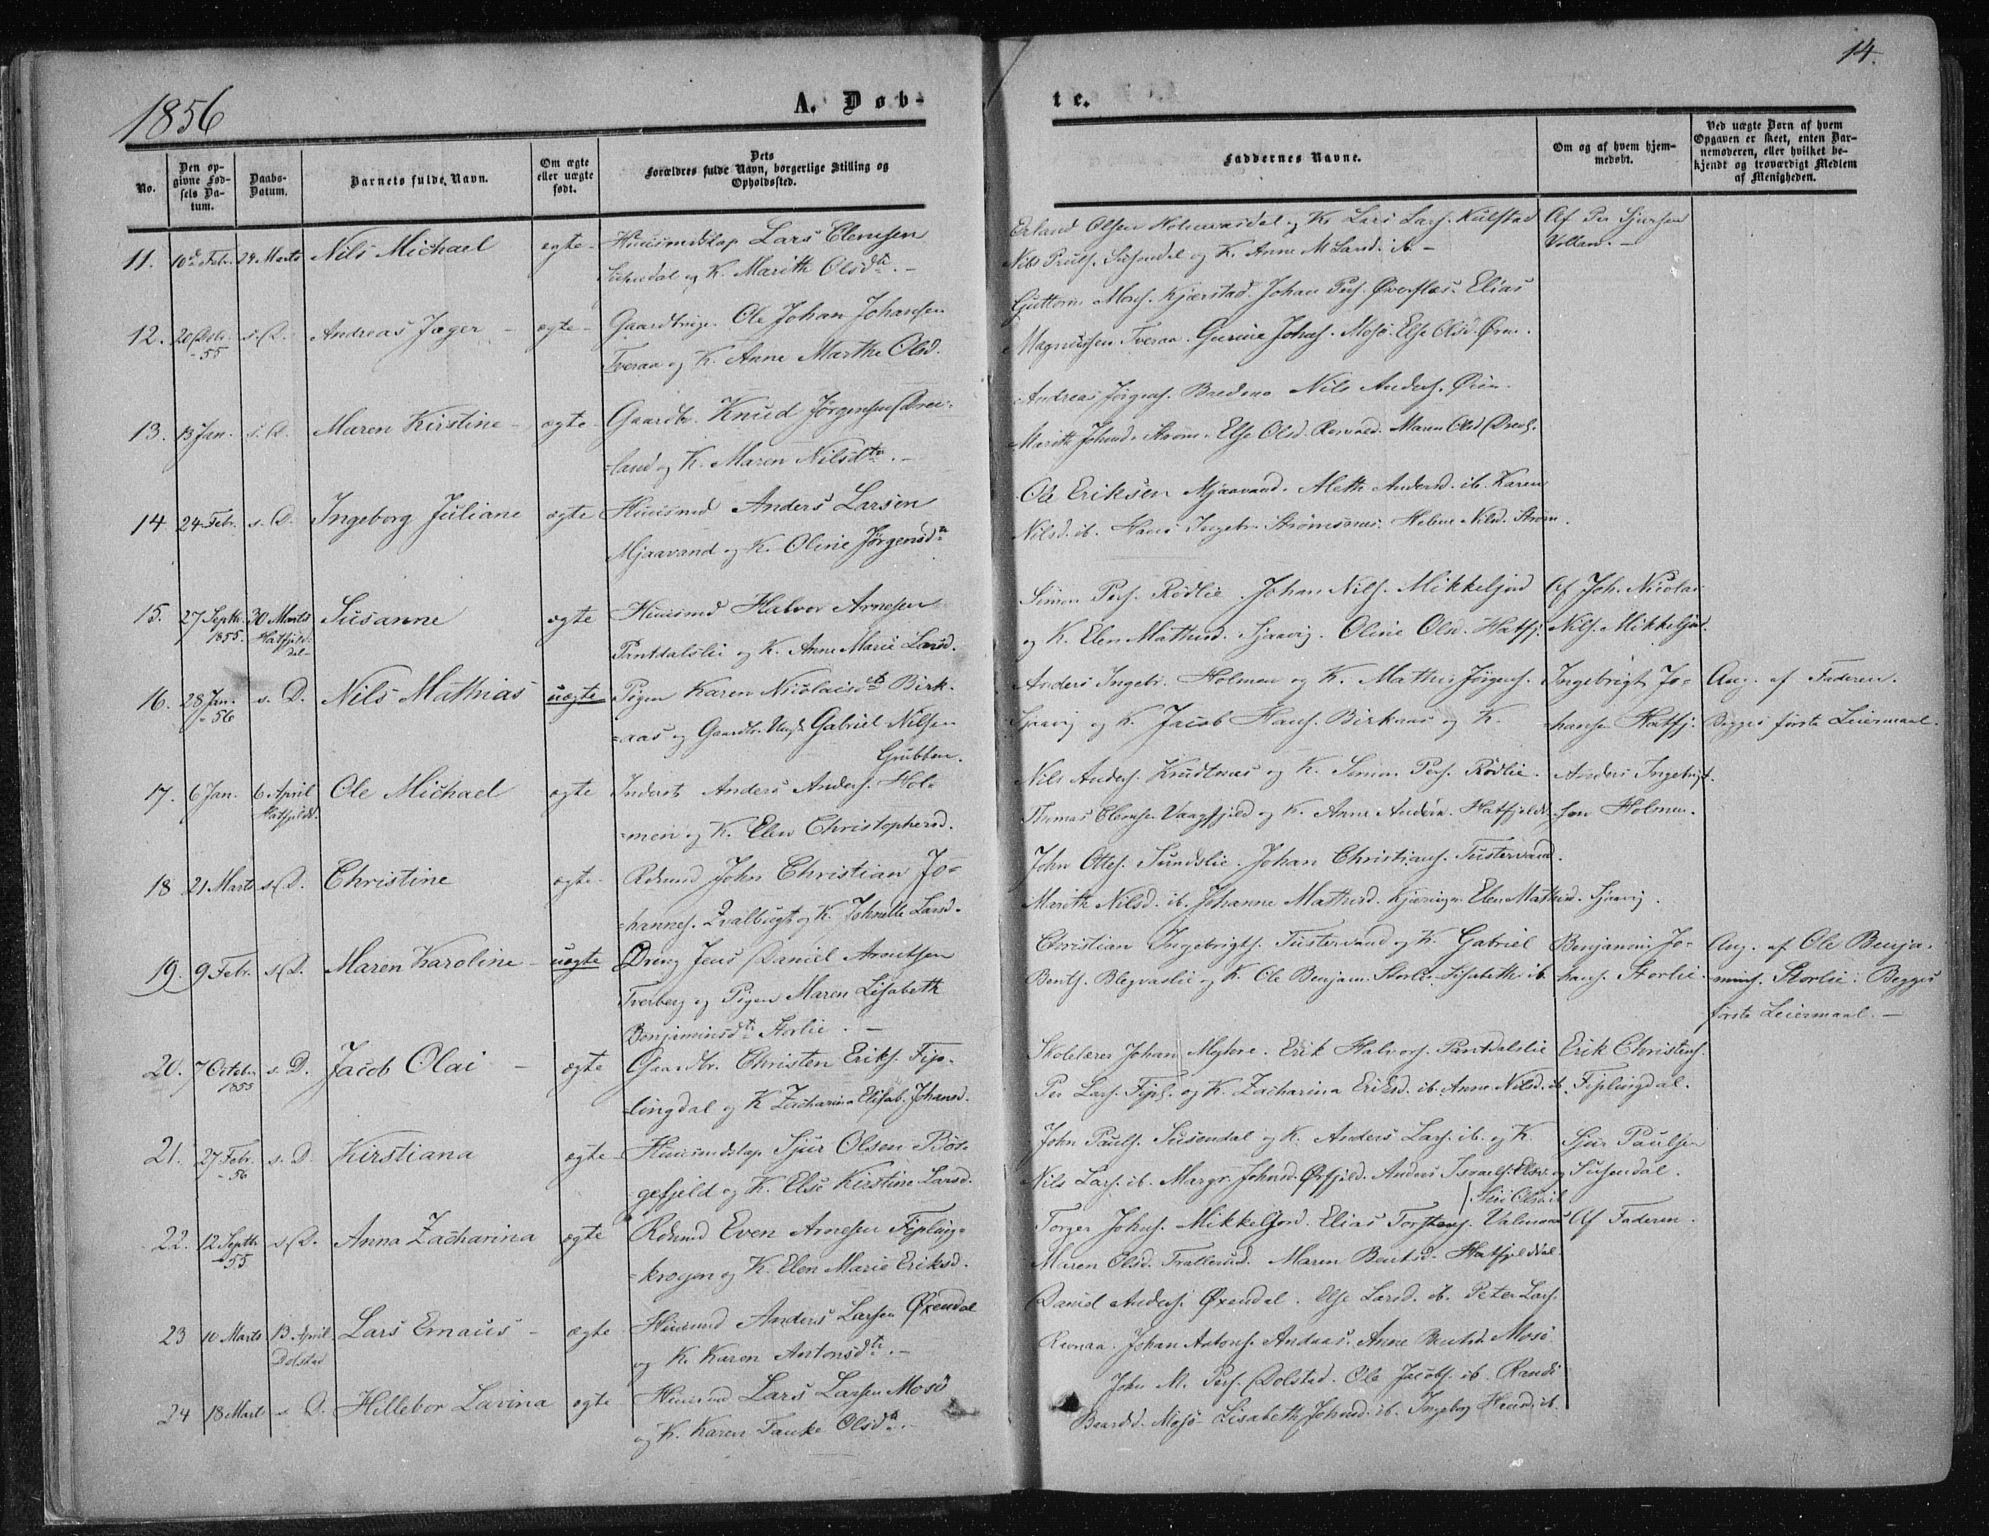 1856
A. Døb-
te.
14.
No.
Den op-
givne Fød-
sels Da-
tum.
Daabs-
Datum.
Barnets fulde Navn.
Om ægte
eller uægte
født.
Dets
Forældres fulde Navn, borgerlige Stilling og
Opholdssted.
Faddernes Navne.
Om og af hvem hjem-
medøbt.
Ved uægte Børn af hvem
Opgaven er skeet, enten Bar-
nemoderen, eller hvilket be-
kjendt og troværdigt Medlem
af Menigheden.
11. 10de Febr. 24 Marts Nils Michael ægte Huusmdskap Lars Clemsen
Susendal og K. Marith Olsdtr. -
Erland Olsen Holmvasdal og K. Lars Lars. Kulstad
Nils Pauls. Susendal og K. Anne M. Lars. ib. -
Af Per Sjursen
Vollen. -
12. 20 Octbr. s. D. Andreas Jæger ægte Gaardbruger Ole Johan Johansen
-55
Tveraa og K. Anne Marthe Olsd.
Guttorm Mons. Kjærstad. Johan Pers. Øverslæs. Elias
Magnussen Tveraa. Gurine Johns. Mosø. Else Olsd. Øren.
13. 13 Jan. s. D. Maren Kirstine ægte Gaardbr. Knud Jørgensen Drev-
land og K. Maren Nilsdtr. -
Andreas Jørgens. Bredmo Nils Anders. Øien
Marith Johnsd. Strøm. Else Olsd. Remaad. Maren Olsd. Drevl.
14. 24 Febr. s. D. Ingeborg Juliane ægte Huusmd Anders Larsen
Mjaavand og K. Oline Jørgensdtr
Ole Eriksen Mjaavand. Aleth Andersd. ib. Karen
Nilsd. ib. Hans Ingebr. Strømsnes. Helene Nilsd. Strøm.
15. 27 Septbr. 30 Marts Susanne ægte Huusmd Halvor Arnesen
1855. Hatfjeld-
dal-
Pantdalslie og K. Anne Marie Larsd.
Simon Pers. Rødlie. Johan Nils. Mikkeljord
og K. Elen Mathisd. Sjaavig. Oline Olsd. Hatfj.
Af Joh. Nicolai
Nils. Mikkeljord.
16. 28 Jan. s. D. Nils Mathias uægte Pigen Karen Nicolaisdtr Birk-
-56
aas og Gaardbr. Ungk. Gabriel Nilsen
Grubben.
Anders Ingebr. Holmen og K. Mathis Jørgens.
Sjaavig og K. Jacob Hans. Birkaas og K.
Ingebrigt Jo-
hansen Hatfj.
Ang. af Faderen.
Begges første Leiermaal.
17. 6 Jan. 6 April Ole Michael ægte Inderst Anders Anders. Hol-
Hatfjeldd.
men og K. Elen Christophersd.
Nils Anders. Krudtnæs og K. Simon Pers. Rødlie.
Thomas Clemsen Vaagfjeld og K. Anne Andersd. Hatfjeldd.
Anders Ingebrigt-
sen Holmen.
18 21 Marts s. D. Christine ægte Rdsmd John Christian Jo-
hannes. Kvalbugt og K. Johnette Larsd.
John Ottes. Sundslie. Johan Christians. Tustervand.
Marith Nilsd. ib. Johanne Mathisd. Kjæringen Elen Mathisd. Sjaavig.
19. 9 Febr. s. D. Maren Karoline uægte Dreng Jens Daniel Arentsen
Tverberg og Pigen Maren Lisabeth
Benjaminsdtr Storlie. -
Christian Ingebrigts. Tustervand og K. Gabriel
Bents. Blegvaslie og K. Ole Benjam. Storlie. Lisabeth ib.
Benjamin Jo-
hans. Storlie.
Ang. af Ole Benja-
mins. Storlie. Begges
første Leiermaal. -
20. 7 October s. D. Jacob Olai ægte Gaardbr. Christen Eriks. Fip-
1855
lingdal og K. Zacharina Elisab. Johansd.
Skolelærer Johan Myhre. Erik Halvors. Pantdalslie
Per Lars. Fipl. og K. Zacharina Eriksd. ib. Anne Nilsd. ib.
Erik Christens.
Fiplingdal.
21. 27 Febr. s. D. Kirstiana ægte Huusmdskap Sjur Olsen Bør-
-56
gefjeld og K. Else Kirstine Larsd.
John Pauls. Susendal og K. Anders Lars. ib. og K.
Nils Lars. ib. Margr. Johnsd. Ørfjeld. Anders Israels. Elsv. og
Siri Olsd. ib.
Sjur Paulsen
Susendal.
22. 12 Septbr. s. D. Anna Zacharina ægte Rdsmd Even Arnesen Fipling-
-55
krogen og K. Elen Marie Eriksd.
Torger Johns. Mikkeljord. Elias Torstens. Valmaas
Maren Olsd. Trallerud. Maren Bentsd. Hatfjelddal
Af Faderen.
23 10 Marts 13 April Lars Emaus ægte Huusmd Anders Larsen Øxendal
Dolstad
og K. Karen Antonsdtr. -
Daniel Anders. Øxendal. Else Larsd. ib. Peter Lars.
Remaa. Johan Antons. Andaas. Anne Bentsd. Mosø
24 18 Marts s. D. Hellebor Lavina ægte Huusmd Lars Larsen Mosø
og K. Karen Tanke Olsdtr. -
John M. Pers. Dolstad. Ole Jacobs. ib. Randi
Baardsd. Mosø. Lisabeth Johnsd. ib. Ingeborg Hansd. ib.